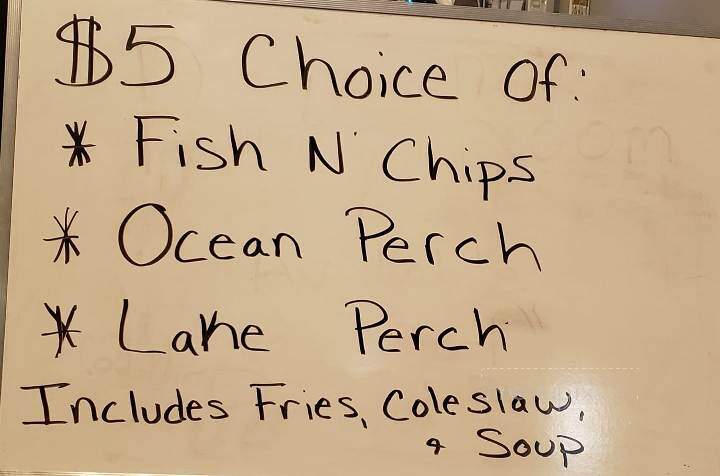 $5 Choice Of:
* Fish N' Chips
* Ocean Perch
* Lake Perch
Includes Fries, Coleslaw,
& Soup